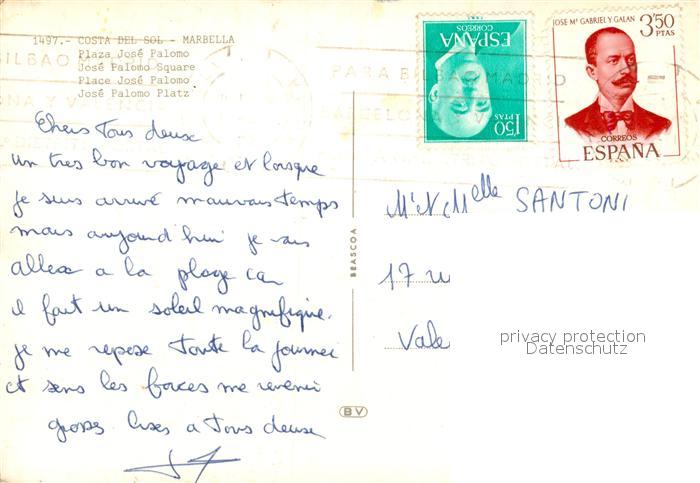 1497.- COSTA DEL SOL - MARBELLA
Plaza José Palomo
José Palomo Square
Place José Palomo
José Palomo Platz
ESPAÑA
CORREOS
1'50 PTAS
JOSE Mª GABRIEL Y GALAN
3'50 PTAS
CORREOS
ESPAÑA
PARA BILBAO MADRID
Chers Tous deux
un tres bon voyage et lorsque
je suis arrivé mauvais temps
mais aujourd'hui je vais
aller a la plage car
il fait un soleil magnifique.
je me repose toute la journei
et sens les forces me revenir
grosses bises a Tous deux
BEASCOA
BV
M' et Melle SANTONI
17 u
Vale
privacy protection
Datenschutz